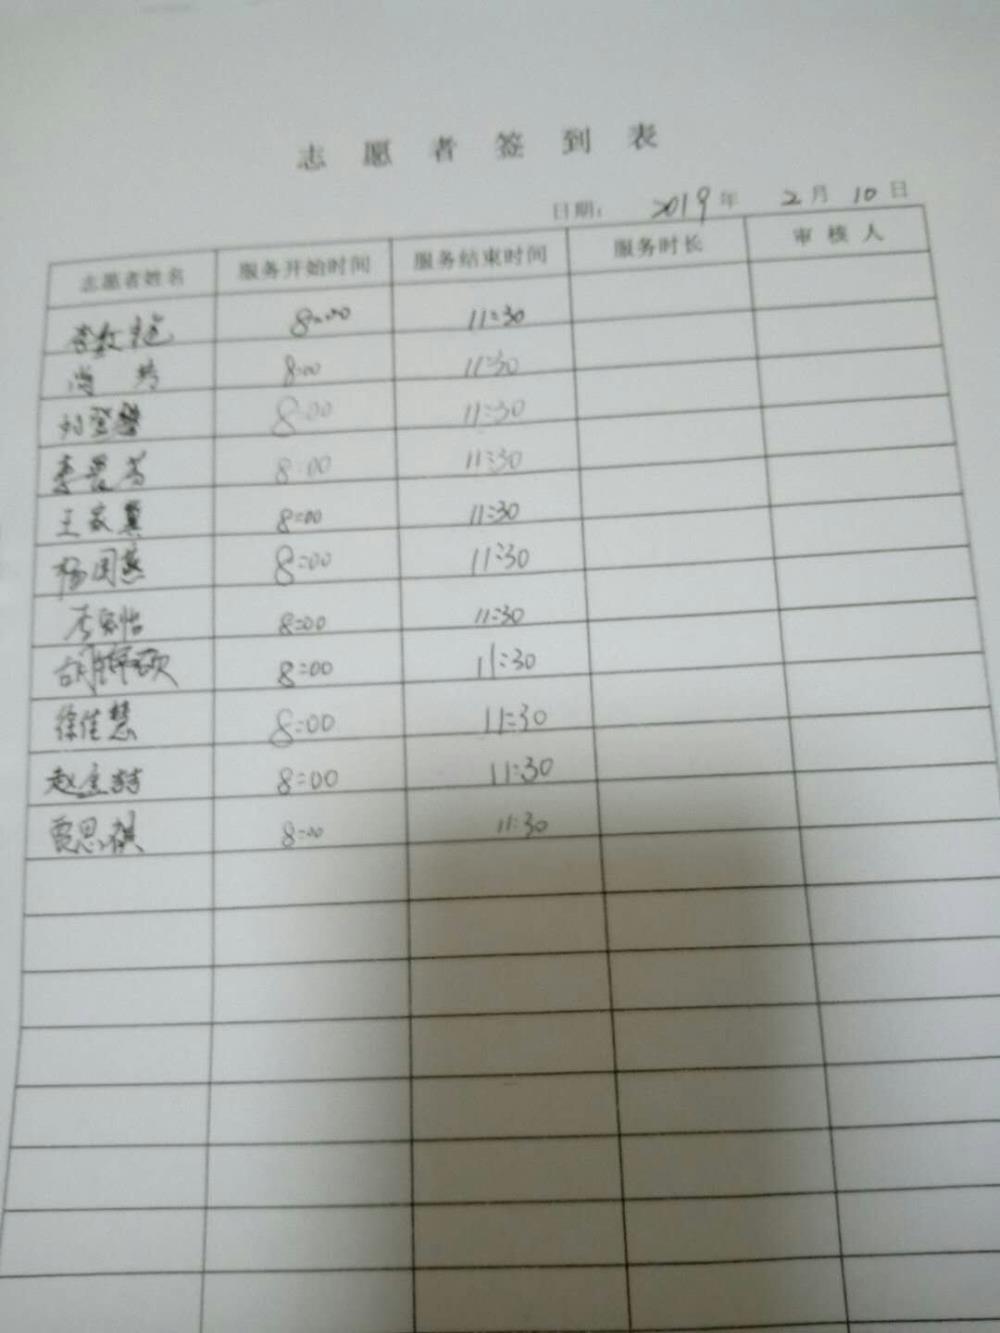 志愿者签到表
日期: 2019年 2月 10日
志愿者姓名 服务开始时间 服务结束时间 服务时长 审核人
8:00 11:30
尚 8:00 11:30
刘登 8:00 11:30
李 8:00 11:30
王家冀 8:00 11:30
杨国燕 8:00 11:30
李 怡 8:00 11:30
胡 8:00 11:30
徐佳慧 8:00 11:30
赵 8:00 11:30
贾思祺 8:00 11:30